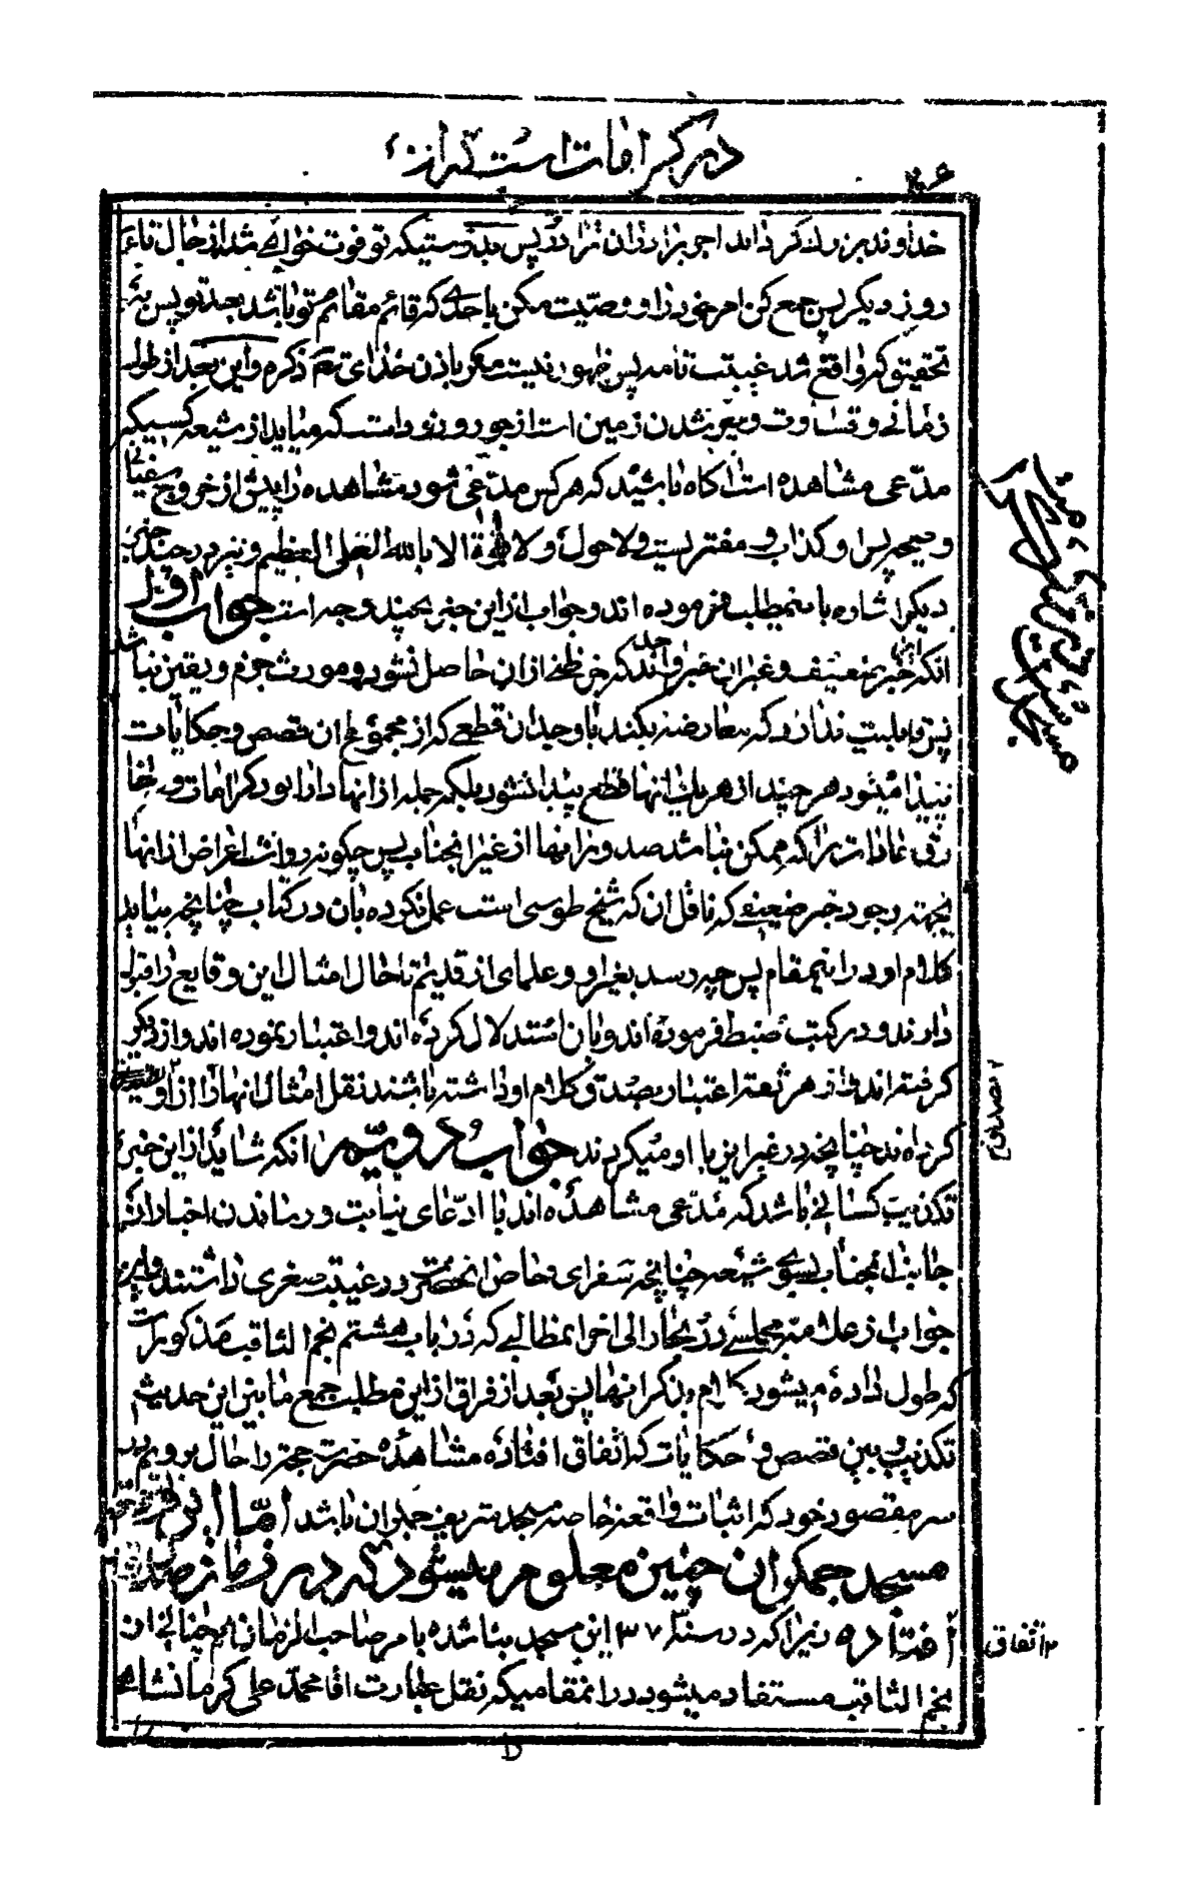 در کرامات است که از
۴۶
خداوند بزرگ کرداند اجر برادران ترا در تو پس بدرستیکه تو فوت خواهی شد از حال تا
روز دیکر پس جمع کن امر خود را و وصیّت مکن باحدی که قائم مقام تو باشد بعد تو پس به
تحقیق که واقع شد غیبت تامه پس ظهور نیست مکر باذن خدای تع ذکره و این بعد از طول
زمانی و قساوت و پر شدن زمین است از جور و زود است که میاید از شیعه کسیکه
مدّعی مشاهده است اکاه باشید که هر کس مدّعی شود مشاهده را پیش از خروج سفیانی
و صیحه پس او کذاب و مفتریست ولا حول ولا قوة الا بالله العلی العظیم و نیز در چند خبر
دیکر اشاره باین مطلب فرموده اند و جواب از این خبر بچند وجه است جواب اول
انکه این خبر ضعیف و غیر ان خبر واحد اند که جز ظنی از ان حاصل نشود و مورث جزم و یقین نباشد
پس قابلیت ندارد که معارضه بکند با وجدان قطعی که از مجموع ان قصص و حکایات
پیدا میشود هر چند از هر یک انها قطع پیدا نشود بلکه جمله از انها دارا بود کرامات و خا
رق عادات را که ممکن نباشد صدور انها از غیر انجناب پس چکونه رواست اعراض از انها
بجهت وجود خبر ضعیفی که ناقل ان که شیخ طوسی است عمل نکرده بان در کتاب چنانچه میاید
کلام او در اینمقام پس چه رسد بغیر او و علمای از قدیم تا حال امثال این وقایع را قبول
دارند و در کتب ضبط فرموده اند و بان استدلال کرده اند و اعتبار نموده اند و از
کرفته اند و از هر ثقه اعتبار بصدق و کلام او داشته باشند نقل امثال انها را از او
کرده اند چنانچه در غیر این با او میکردند جواب دویّم انکه شاید از این خبر
تکذیب کسانی باشد که مدّعی مشاهده اند با ادّعای نیابت و رساندن اخبار از
جانب انجناب بسوی شیعه چنانچه سفرای خاص انحضرت در غیبت صغری داشتند و این
جواب از علامه مجلسی در بحار الی اخر مطالبی که در باب هشتم نجم الثاقب مذکور است
که طول داده میشود کلام بذکر انها پس بعد از فراق از این مطلب جمع مابین این حدیث
تکذیب و بین قصص و حکایات که اتفاق افتاده مشاهده حضرت حجة را حال برویم در
سر مقصود خود که اثبات واقعه خاصه مسجد شریف جمکران باشد امّا این
مسجد جمکران چنین معلوم میشود که در زمان
افتاده زیرا که در سنه ۳۷ این مسجد بنا شده بامر صاحب الزمان چنانچه از
نجم الثاقب مستفاد میشود در انمقامیکه نقل عبارت اقا محمّد علی کرمانشاه
تصدیق
۲ اتفاق